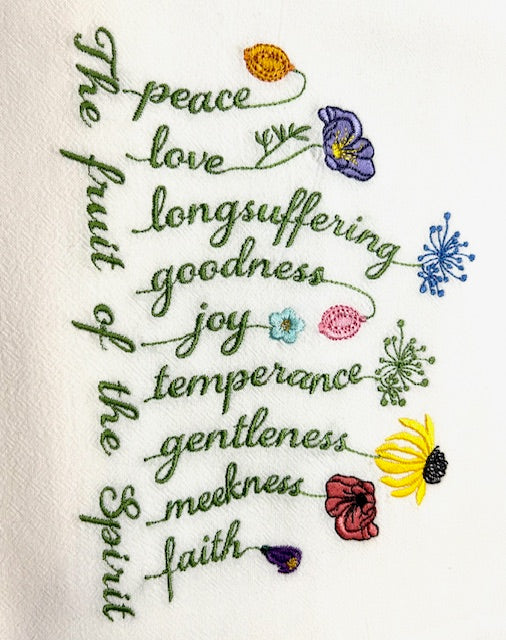 The fruit of the Spirit
peace
love
longsuffering
goodness
joy
temperance
gentleness
meekness
faith